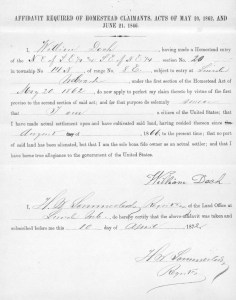 AFFIDAVIT REQUIRED OF HOMESTEAD CLAIMANTS, ACTS OF MAY 20, 1862, AND
JUNE 21, 1866
I, William Dash, having made a Homestead entry
of the section No. 20
in township No. of range No. subject to entry at
under the first section of the Homestead Act of
May 20, 1862 do now apply to perfect my claim thereto by virtue of the first
proviso to the second section of said act; and for that purpose do solemnly swear
that I am a citizen of the United States; that I
have made actual settlement upon and have cultivated said land, having resided thereon since the
day of August 1866, to the present time; that no part
of said land has been alienated, but that I am the sole bona fide owner as an actual settler; and that I
have borne true allegiance to the government of the United States.
William Dash
I, H. M. of the Land Office at
do hereby certify that the above affidavit was taken and
subscribed before me this 10 day of April
H. M.